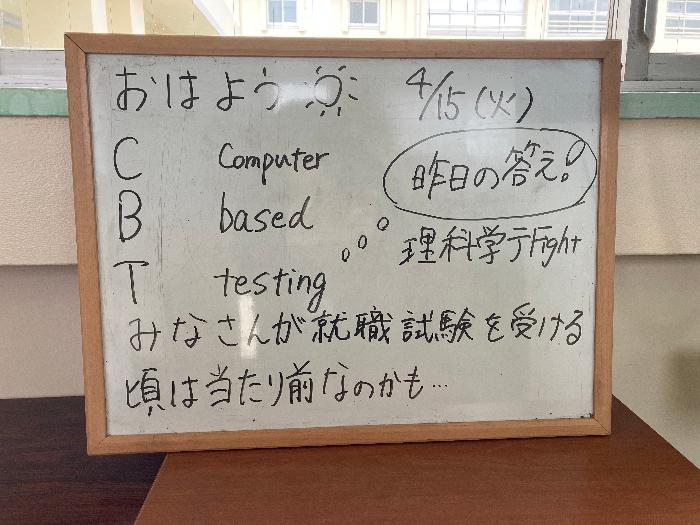 おはよう 4/15(火)
C Computer
昨日の答え!
B based
理科学テFight
T testing
みなさんが就職試験を受ける
頃は当たり前なのかも…